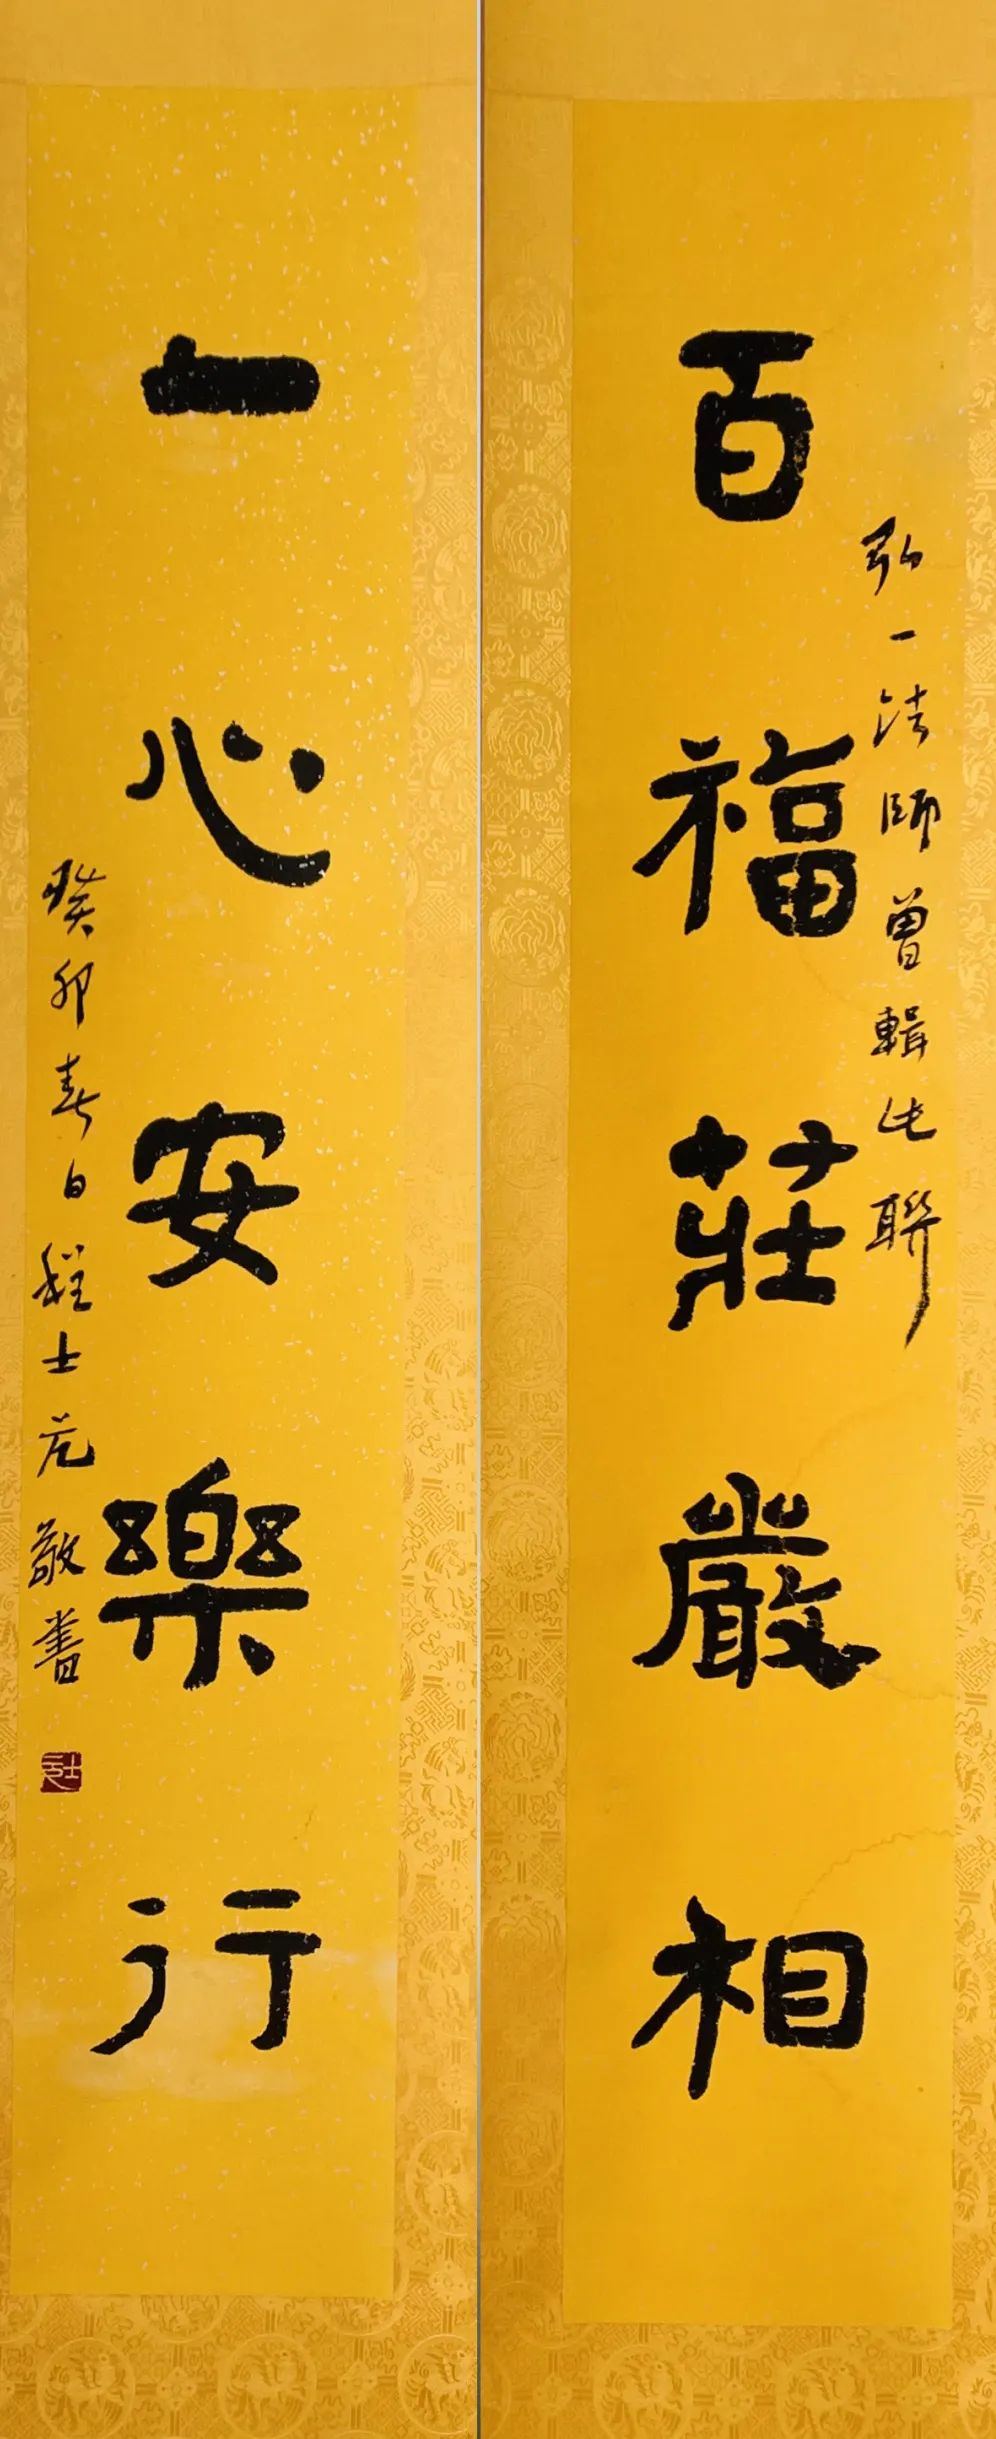 百福莊嚴相
弘一法師曾輯此聯
一心安樂行
癸卯春日程士元敬書